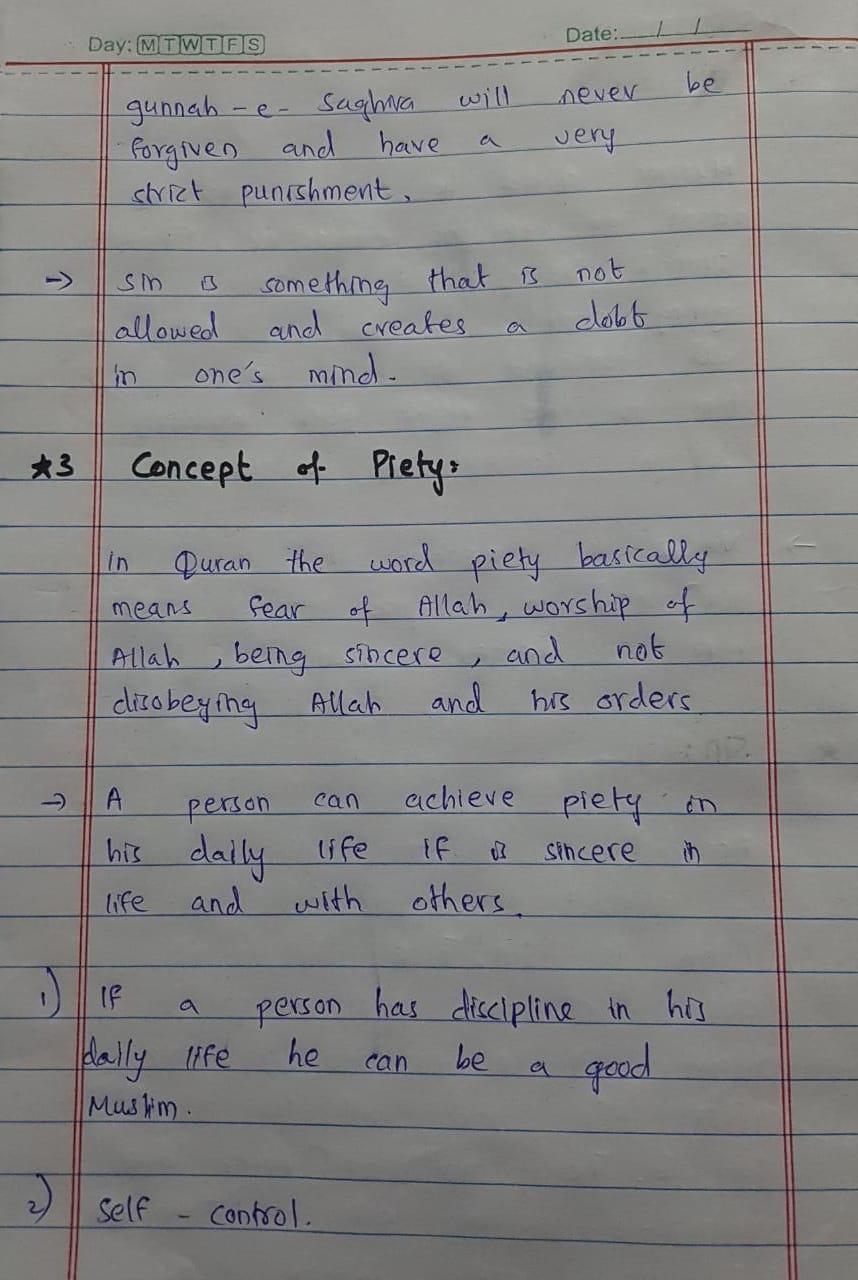 Day: M T W T F S
Date: / /
gunnah - e - Saghira will never be
forgiven and have a very
strict punishment.
→ sin is something that is not
allowed and creates a dobt
in one's mind.
★3 Concept of Piety:
in Quran the word piety basically
means fear of Allah, worship of
Allah, being sincere, and not
disobeying Allah and his orders
→ A person can achieve piety in
his daily life if is sincere in
life and with others.
1) If a person has discipline in his
daily life he can be a good
Muslim.
2) Self - control.